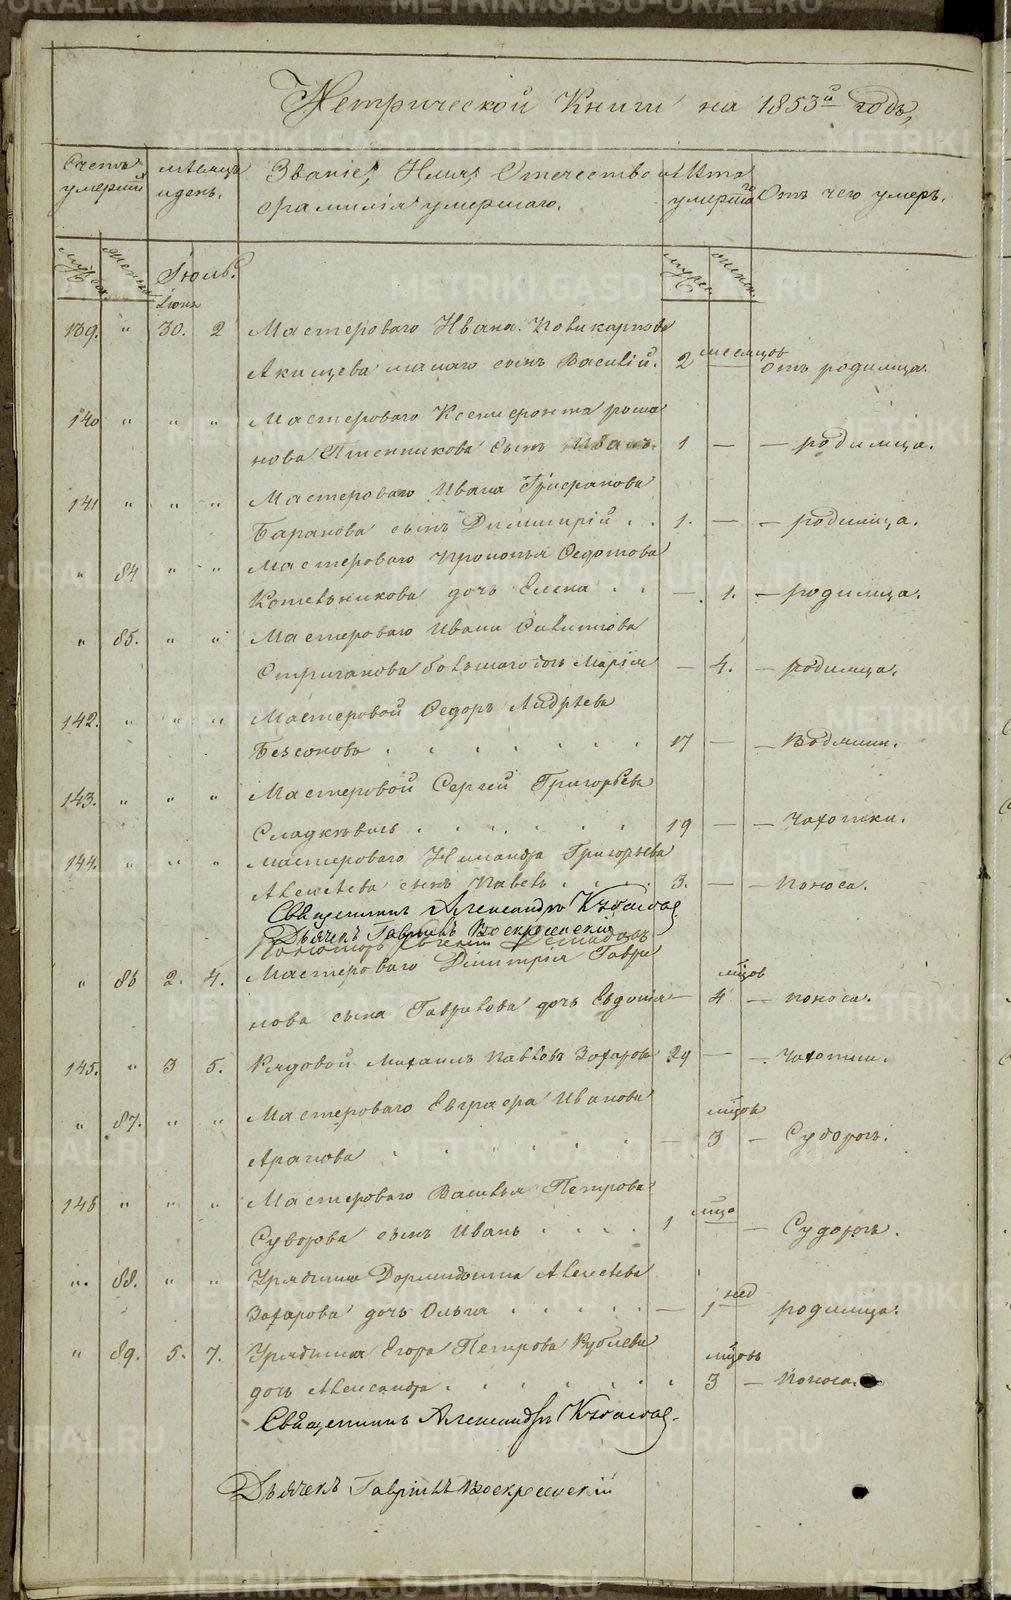 Метрической Книги на 1853й годъ,
Счетъ умершихъ
мѣсяцъ и день.
Званіе, Имя, Отечество и
фамилія умершаго.
Лѣта умершаго
Отъ чего умеръ.
мужск. женск. Іюль. мужс. женск.
Іюня
139. " 30. 2 Мастероваго Ивана Поликарпова
Акищева малаго сынъ Василій. 2 месяцов Отъ родимца.
140 " " " Мастероваго
сынъ Иванъ. 1 — — родимца.
141 " " " Мастероваго Ивана
Баранова сынъ Димитрій . . 1. — — родимца.
" 84 " " Мастероваго Прокопья Федотова
Котельникова дочь Елена . . — 1. — родимца.
" 85. " " Мастероваго Ивана
Стриганова большаго дочь Марія — 4. — родимца.
142. " " " Мастеровой Федоръ Андрѣевъ
Безсоновъ . . . . . . . 17 — — Водянки.
143. " " " Мастеровой Сергей Григорьевъ
. . . . . . 19 — — Чахотки.
144. " " " Мастероваго Никандра Григорьева
Алексѣева сынъ Павелъ . . . . 3. — — Поноса.
Священникъ Александръ
Дьячекъ Гавриилъ Воскресенскій
Пономарь Евгений
" 86 2. 4. Мастероваго Димитрія Гаври
лова сына Гаврилова дочь Евдокія — мцов 4 — поноса.
145. " 3 5. Рядовой Михаилъ Павловъ Захаровъ 29 — — Чахотки.
" 87. " " Мастероваго Евграфа Иванова
Арапова . . . . . . — мцов 3 — Судорогъ.
146 " " " Мастероваго Василья Петрова
Суворова сынъ Иванъ . . . . 1 мца — Судорогъ.
" 88. " " Урядника Дормидонта Алексѣева
Захарова дочь Ольга . . . . . — 1 нед родимца.
" 89. 5. 7. Урядника Егора Петрова Рублева
дочь Александра . . . . . . . мцовъ 3 — Поноса.
Священникъ Александръ
Дьячекъ Гавриилъ Воскресенскій
METRIKI.GASO-URAL.RU